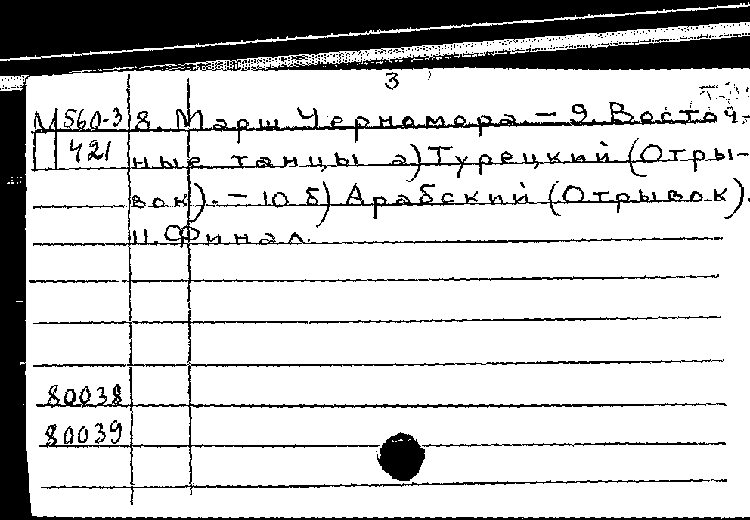 3
М 560-3 8. Марш Черномора – 9. Восточ-
421 ные танцы а) Турецкий (Отры-
вок). – 10 б) Арабский (Отрывок).
11. Финал.
80038
80039